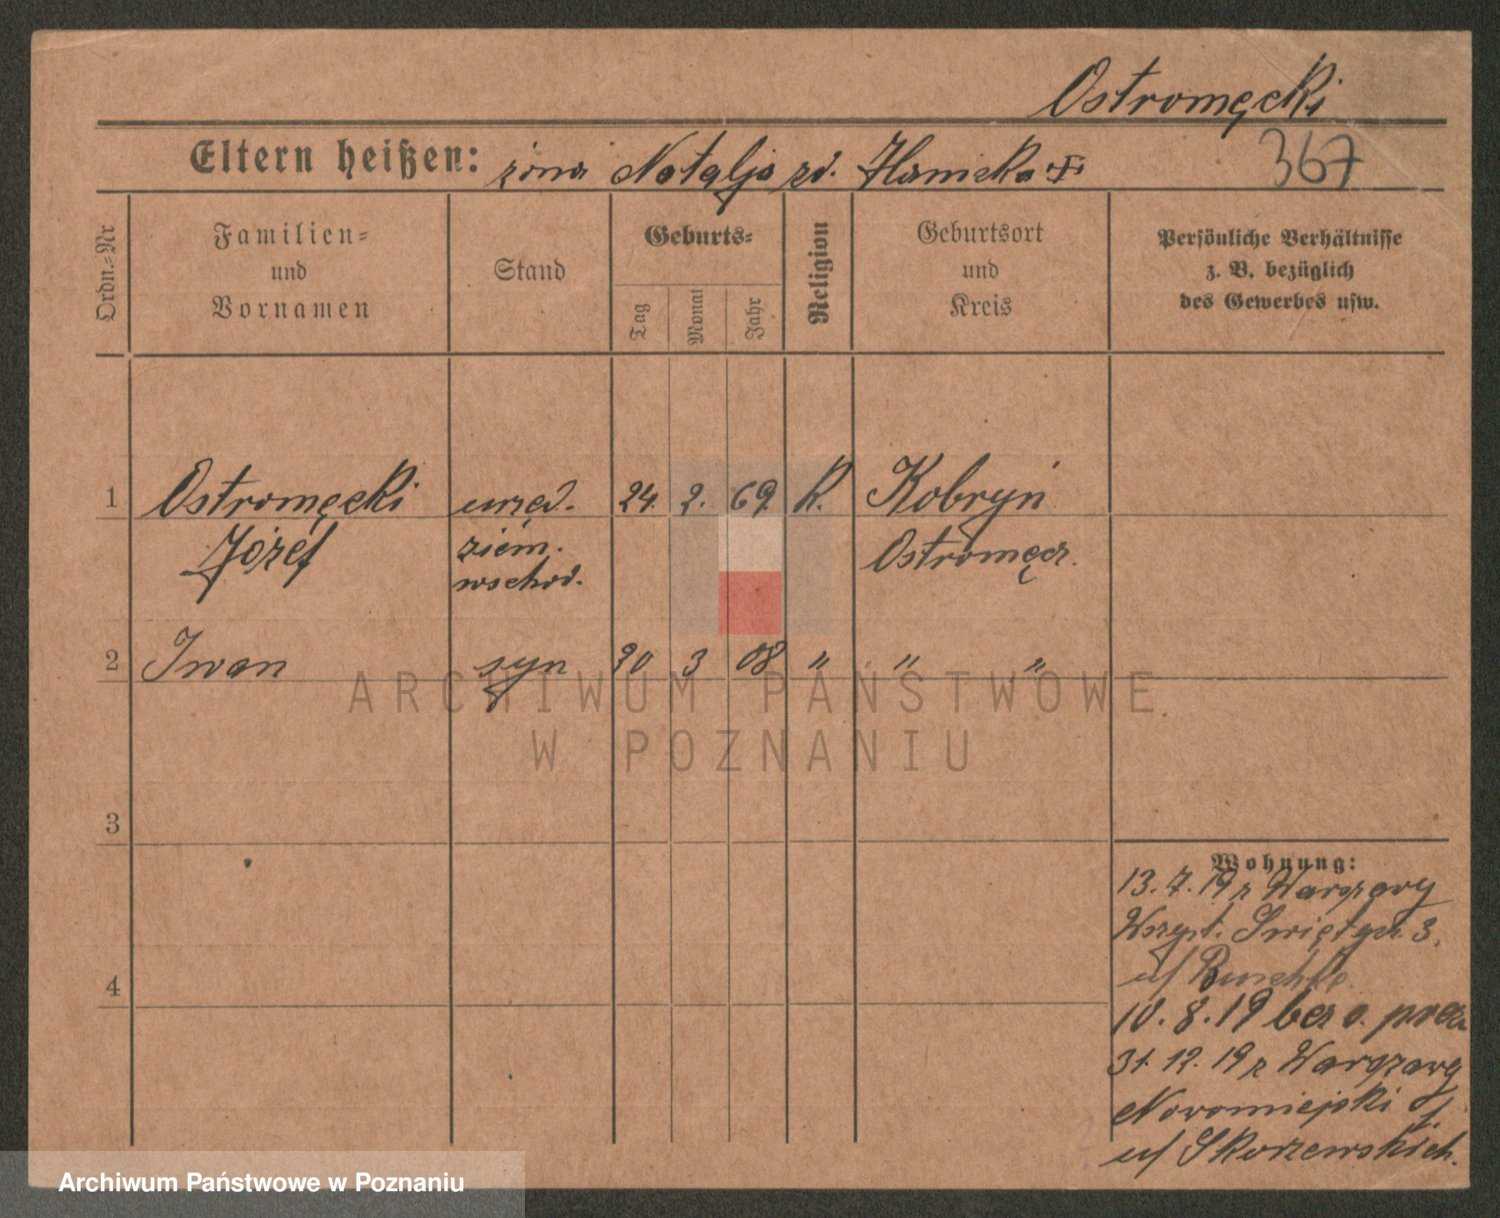 Ostromęcki
Eltern heißen: żona Natalja zd. Hanicka
367
Ordn.-Nr
Familien-
und
Vornamen
Stand
Geburts-
Tag
Monat
Jahr
Religion
Geburtsort
und
Kreis
Persönliche Verhältnisse
z. B. bezüglich
des Gewerbes usw.
1 Ostromęcki urzęd. 24. 2. 69. K. Kobryń
Józef ziem. Ostromęcz.
wschod.
2 Iwan syn 30 3 08 " " "
ARCHIWUM PAŃSTWOWE
W POZNANIU
3
4
Wohnung:
13.7.19 z Warszawy
Wszyst. Święt 3.
u/
10.8.19 bez o.
31.12.19 z Warszawy
Nowomiejski
u/ Skorzewskich.
Archiwum Państwowe w Poznaniu